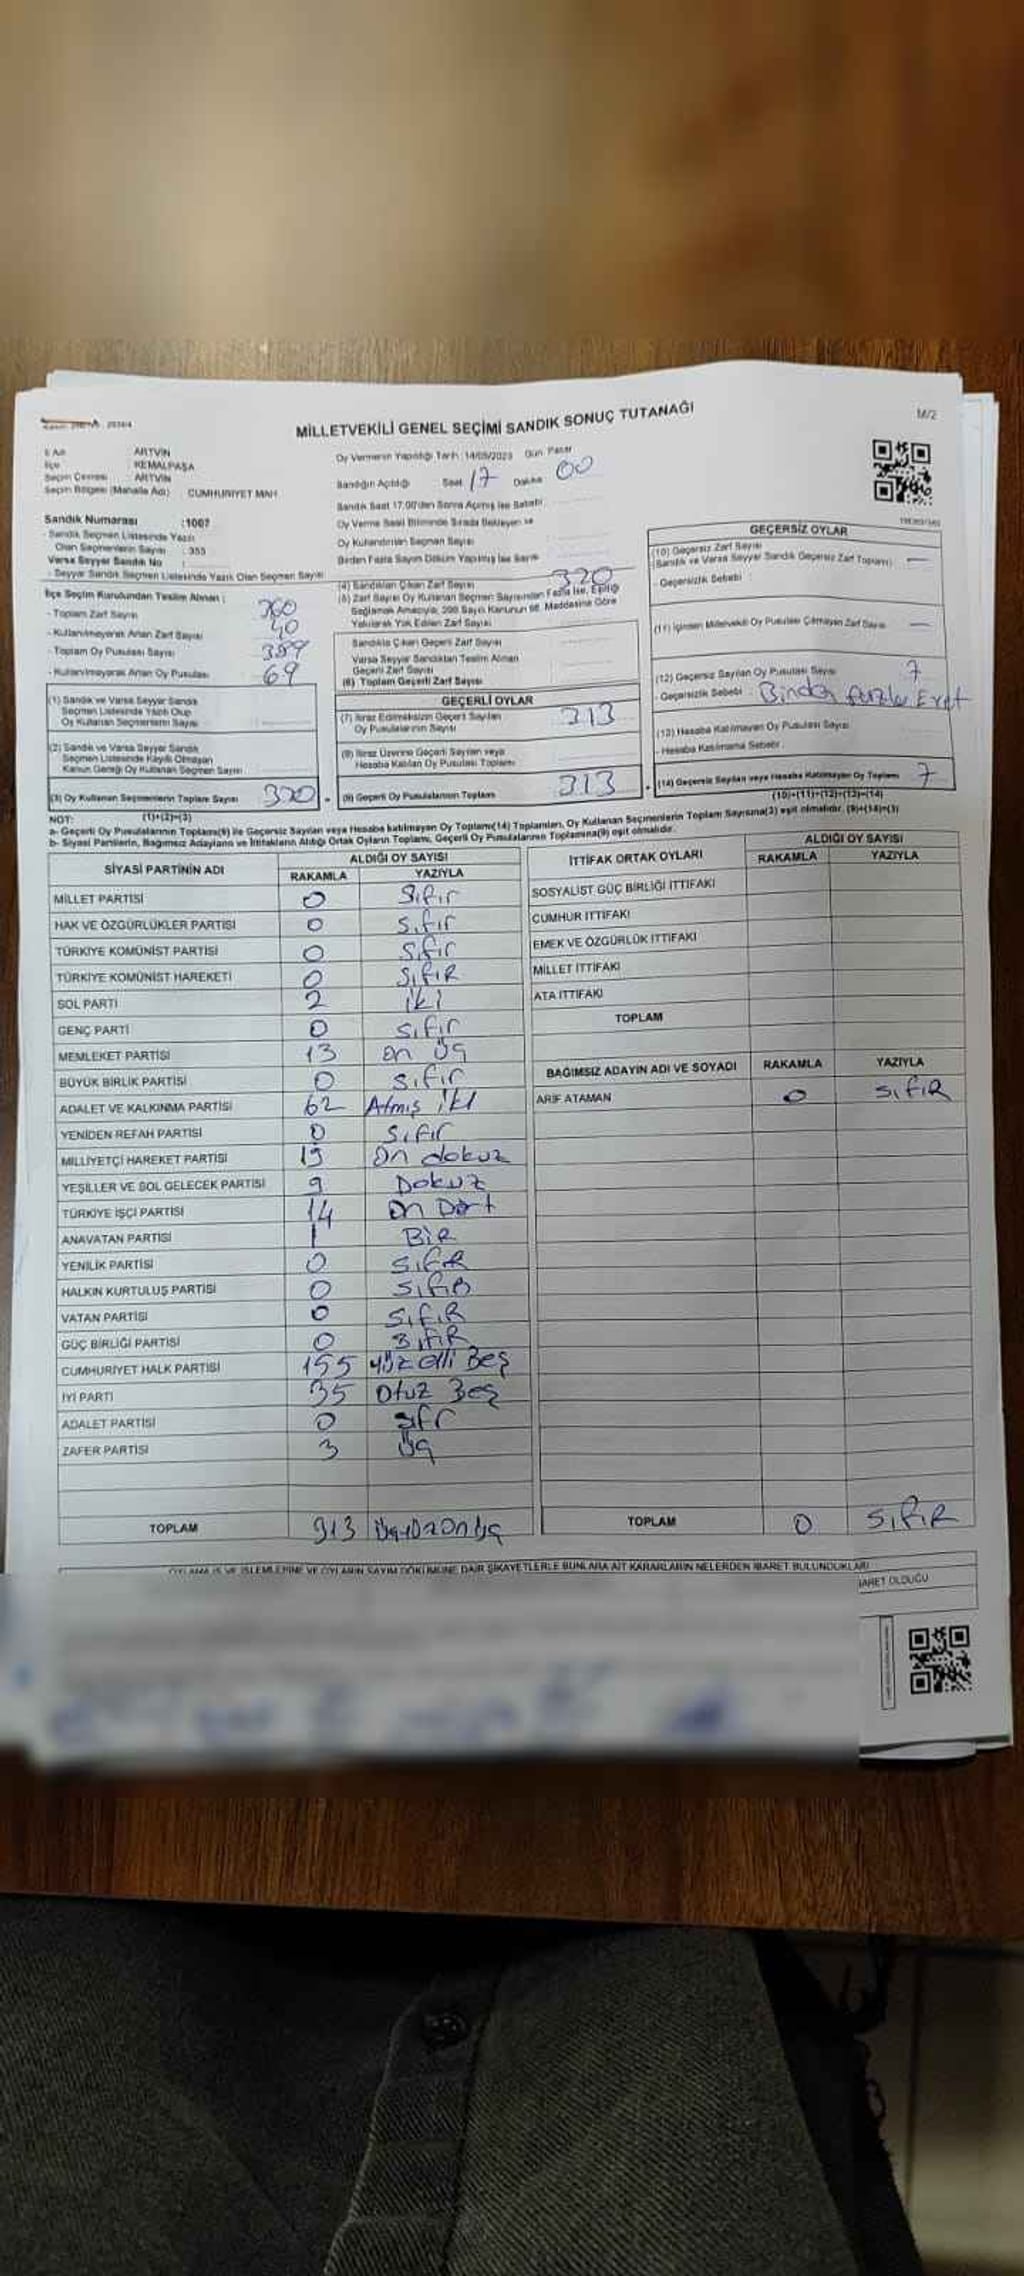 MİLLETVEKİLİ GENEL SEÇİMİ SANDIK SONUÇ TUTANAĞI
M/2
İl Adı : ARTVİN
İlçe : KEMALPAŞA
Seçim Çevresi : ARTVİN
Seçim Bölgesi (Mahalle Adı) CUMHURİYET MAH.
Oy Vermenin Yapıldığı Tarih :14/05/2023 Gün: Pazar
Sandığın Açıldığı Saat 17 Dakika 00
Sandık Saat 17:00'den Sonra Açılmış İse Sebebi
Oy Verme Saati Bitiminde Sırada Bekleyen ve
Oy Kullandırılan Seçmen Sayısı
Birden Fazla Sayım Döküm Yapılmış İse Sayısı
Sandık Numarası :1007
- Sandık Seçmen Listesinde Yazılı
Olan Seçmenlerin Sayısı : 355
Varsa Seyyar Sandık No :
- Seyyar Sandık Seçmen Listesinde Yazılı Olan Seçmen Sayısı
İlçe Seçim Kurulundan Teslim Alınan :
- Toplam Zarf Sayısı 360
- Kullanılmayarak Artan Zarf Sayısı 40
- Toplam Oy Pusulası Sayısı 389
- Kullanılmayarak Artan Oy Pusulası 69
(1) Sandık ve Varsa Seyyar Sandık
Seçmen Listesinde Yazılı Olup
Oy Kullanan Seçmenlerin Sayısı
(2) Sandık ve Varsa Seyyar Sandık
Seçmen Listesinde Kayıtlı Olmayan
Kanun Gereği Oy Kullanan Seçmen Sayısı
(3) Oy Kullanan Seçmenlerin Toplam Sayısı 320
(1)+(2)=(3)
(4) Sandıktan Çıkan Zarf Sayısı 320
(5) Zarf Sayısı Oy Kullanan Seçmen Sayısından Fazla İse, Eşitliği
Sağlamak Amacıyla, 298 Sayılı Kanunun 98. Maddesine Göre
Yakılarak Yok Edilen Zarf Sayısı
Sandıkta Çıkan Geçerli Zarf Sayısı
Varsa Seyyar Sandıktan Teslim Alınan
Geçerli Zarf Sayısı
(6) Toplam Geçerli Zarf Sayısı
GEÇERLİ OYLAR
(7) İtiraz Edilmeksizin Geçerli Sayılan
Oy Pusulalarının Sayısı 313
(8) İtiraz Üzerine Geçerli Sayılan veya
Hesaba Katılan Oy Pusulası Toplamı
(9) Geçerli Oy Pusulalarının Toplamı 313
GEÇERSİZ OYLAR
(10) Geçersiz Zarf Sayısı
(Sandık ve Varsa Seyyar Sandık Geçersiz Zarf Toplamı) —
- Geçersizlik Sebebi :
(11) İçinden Milletvekili Oy Pusulası Çıkmayan Zarf Sayısı —
(12) Geçersiz Sayılan Oy Pusulası Sayısı 7
- Geçersizlik Sebebi : Birden fazla Evet
(13) Hesaba Katılmayan Oy Pusulası Sayısı
- Hesaba Katılmama Sebebi :
(14) Geçersiz Sayılan veya Hesaba Katılmayan Oy Toplamı 7
(10)+(11)+(12)+(13)=(14)
NOT:
a- Geçerli Oy Pusulalarının Toplamı(9) ile Geçersiz Sayılan veya Hesaba katılmayan Oy Toplamı(14) Toplamları, Oy Kullanan Seçmenlerin Toplam Sayısına(3) eşit olmalıdır. (9)+(14)=(3)
b- Siyasi Partilerin, Bağımsız Adayların ve İttifakların Aldığı Ortak Oyların Toplamı, Geçerli Oy Pusulalarının Toplamına(9) eşit olmalıdır.
SİYASİ PARTİNİN ADI ALDIĞI OY SAYISI
RAKAMLA YAZIYLA
MİLLET PARTİSİ 0 Sıfır
HAK VE ÖZGÜRLÜKLER PARTİSİ 0 Sıfır
TÜRKİYE KOMÜNİST PARTİSİ 0 Sıfır
TÜRKİYE KOMÜNİST HAREKETİ 0 SıfıR
SOL PARTİ 2 iki
GENÇ PARTİ 0 Sıfır
MEMLEKET PARTİSİ 13 on üç
BÜYÜK BİRLİK PARTİSİ 0 Sıfır
ADALET VE KALKINMA PARTİSİ 62 Atmış iki
YENİDEN REFAH PARTİSİ 0 Sıfır
MİLLİYETÇİ HAREKET PARTİSİ 19 On dokuz
YEŞİLLER VE SOL GELECEK PARTİSİ 9 Dokuz
TÜRKİYE İŞÇİ PARTİSİ 14 On Dört
ANAVATAN PARTİSİ 1 BiR
YENİLİK PARTİSİ 0 SıfıR
HALKIN KURTULUŞ PARTİSİ 0 SıfıR
VATAN PARTİSİ 0 SıfıR
GÜÇ BİRLİĞİ PARTİSİ 0 SıfıR
CUMHURİYET HALK PARTİSİ 155 yüz elli Beş
İYİ PARTİ 35 Otuz Beş
ADALET PARTİSİ 0 sıfır
ZAFER PARTİSİ 3 üç
TOPLAM 313 üçyüzonüç
İTTİFAK ORTAK OYLARI ALDIĞI OY SAYISI
RAKAMLA YAZIYLA
SOSYALİST GÜÇ BİRLİĞİ İTTİFAKI
CUMHUR İTTİFAKI
EMEK VE ÖZGÜRLÜK İTTİFAKI
MİLLET İTTİFAKI
ATA İTTİFAKI
TOPLAM
BAĞIMSIZ ADAYIN ADI VE SOYADI RAKAMLA YAZIYLA
ARİF ATAMAN 0 SıfıR
TOPLAM 0 SıfıR
OYLAMA İŞ VE İŞLEMLERİNE VE OYLARIN SAYIM DÖKÜMÜNE DAİR ŞİKAYETLERLE BUNLARA AİT KARARLARIN NELERDEN İBARET BULUNDUKLARI
İBARET OLDUĞU